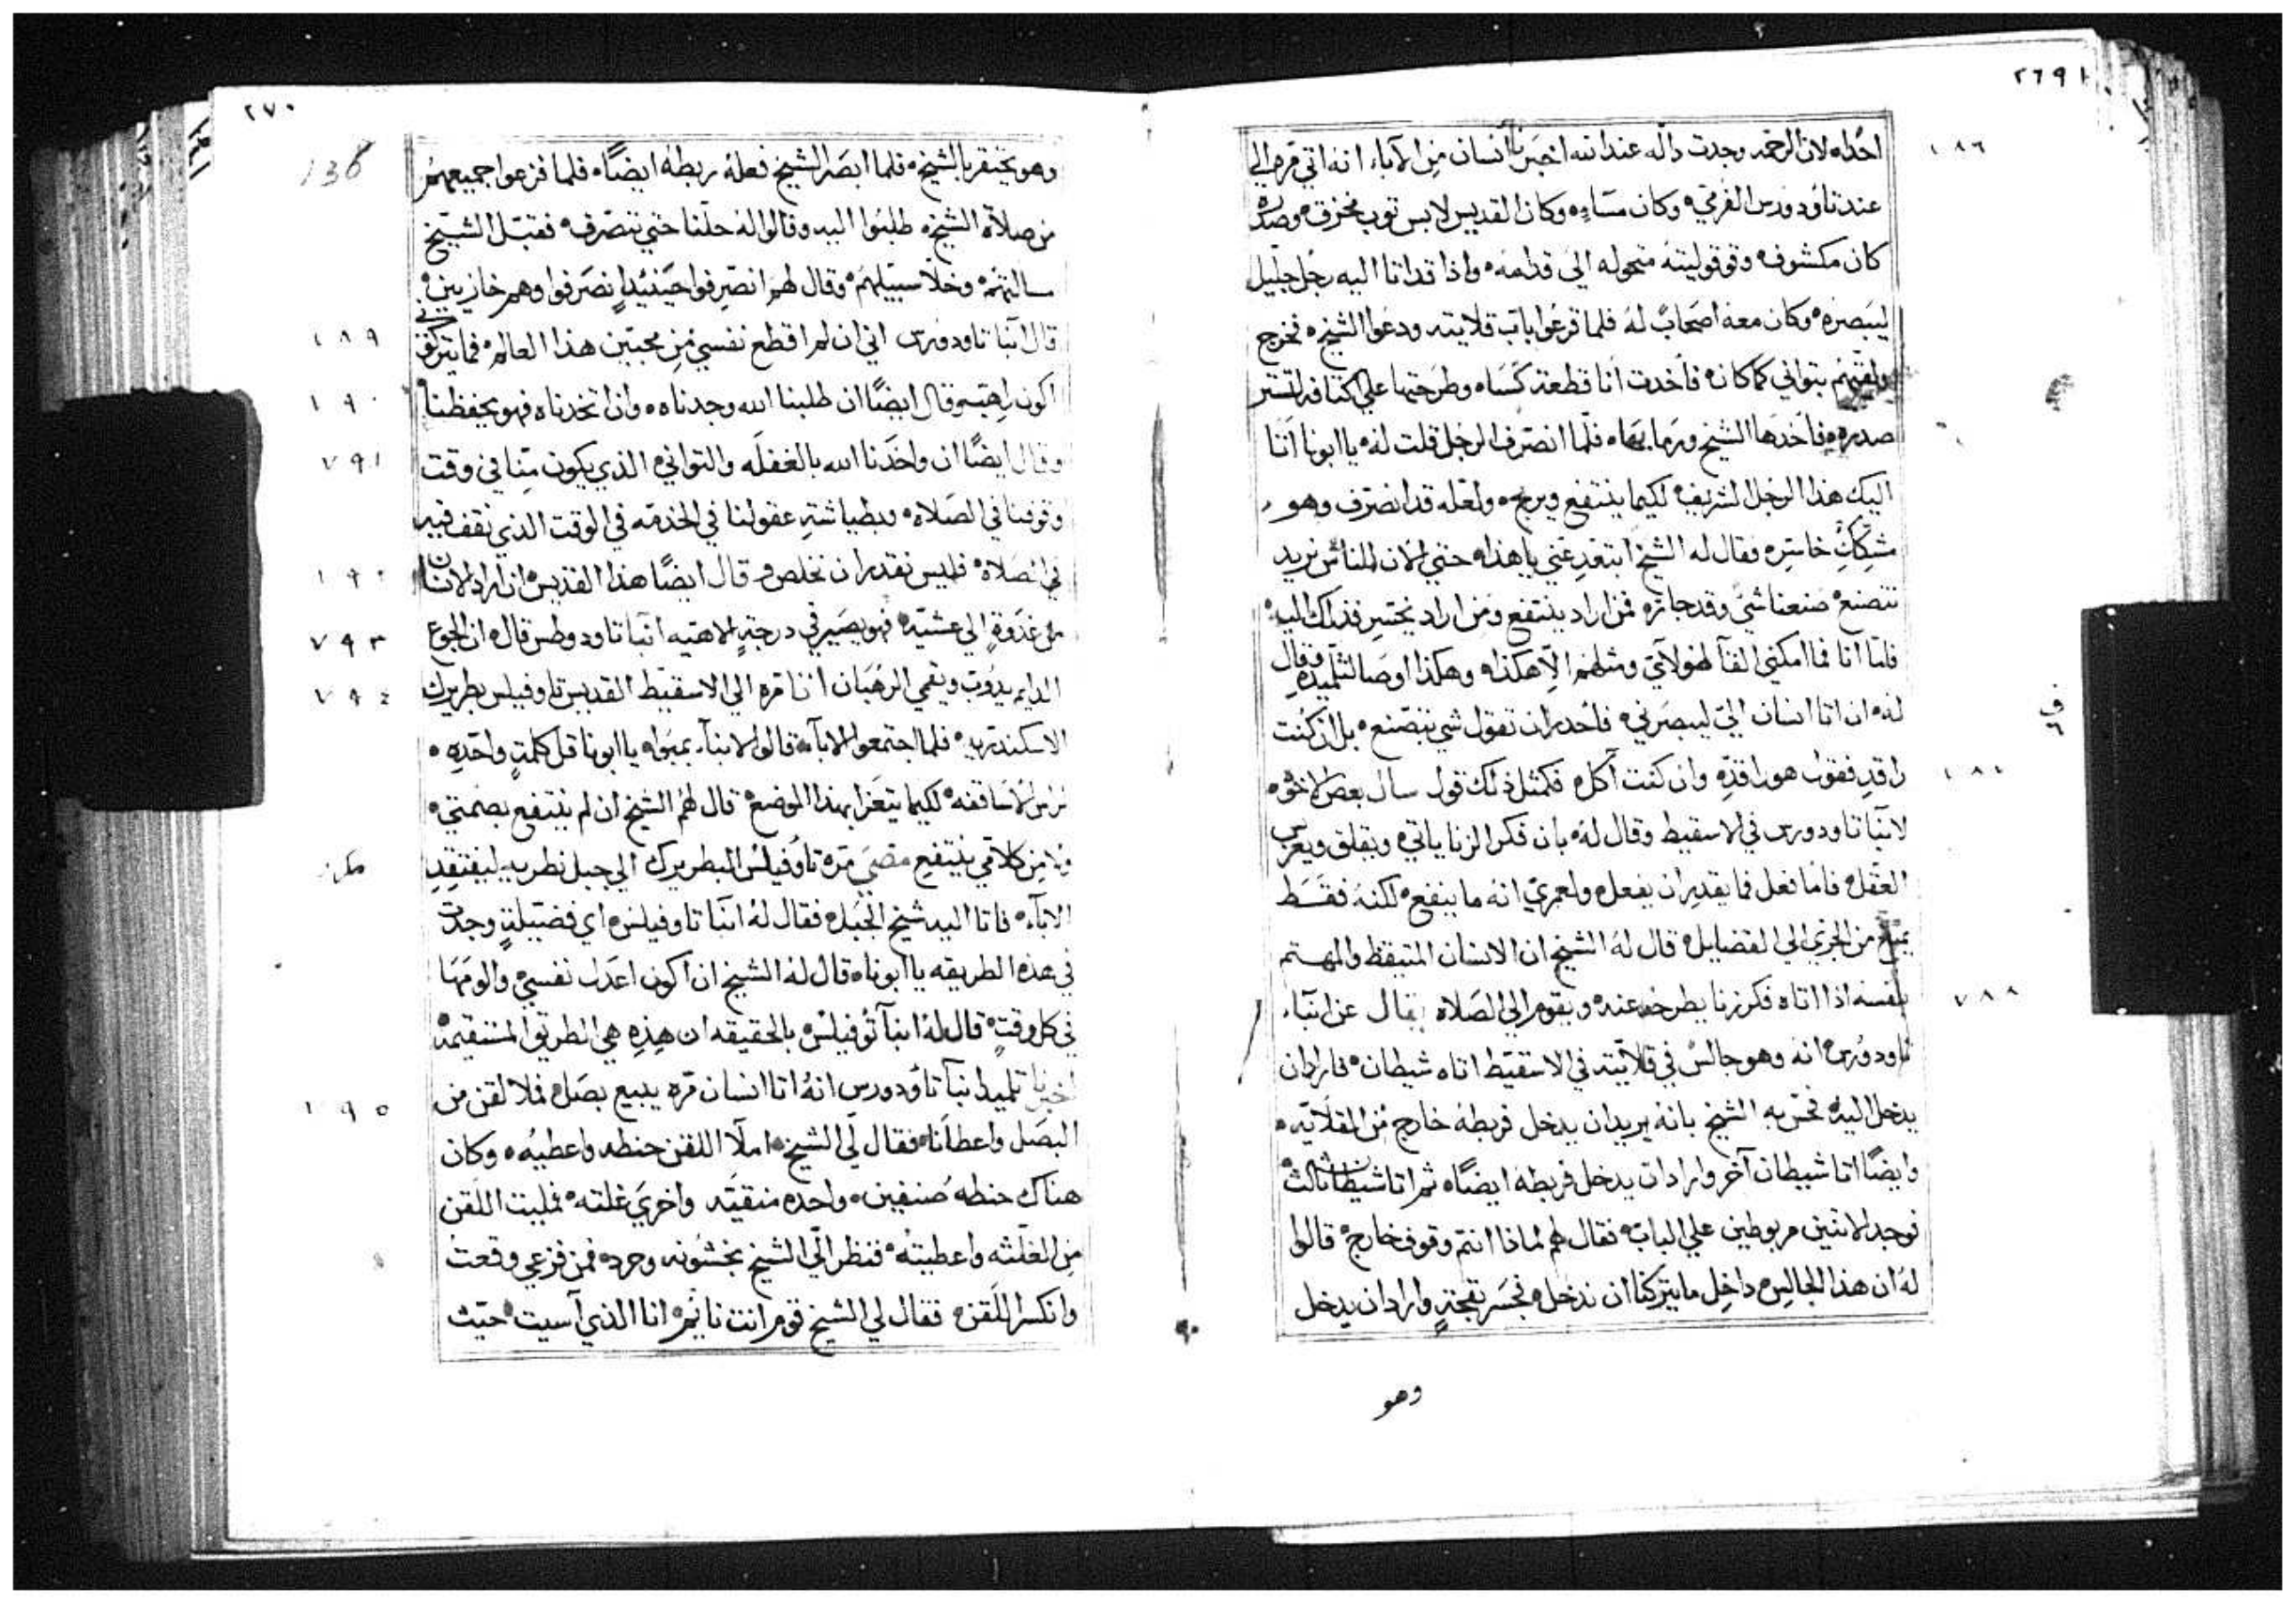 ٢٦٩
احدًا لان الرحمه وجدت داله عند الله اخبرنا انسان من الاباء انه اتي مره الي
عند تاودورس الفرمي وكان مساءٍ وكان القديس لابس توب مخزق وصدره
كان مكشوف وقوقوليته متحوله الي قدامه واذا قد اتا اليه رجل جليل
ليبصره وكان معه اصحابٌ له فلما قرعوا باب قلايته ودعوا الشيخ فخرج
ولقيهم بتواني كما كان فأخدت انا قطعة كساه وطرحتها علي اكتافه لتستر
صدره فاخدها الشيخ ورما بها فلما انصرف الرجل قلت له يا ابونا اتا
اليك هذا الرجل الشريف لكيما ينتفع ويربح ولعله قد انصرف وهو
متشكك خاسره فقال له الشيخ ابتعد عني يا هذا حتي الان للناس نريد
نتصنع صنعنا شي وقد جازه فمن اراد ينتفع ومن اراد يخسر فذاك اليه
فاما انا فما امكني القآ لهولاي ومثلهم الا هكذا وهكذا اوصا لتلميده وقال
له ان اتا انسان الي ليبصرني فاحدر ان تقول شي تتصنع بل ان كنت
راقد فقول هو راقد وان كنت آكل فكمثل ذلك قول سال بعض الاخوه
لانبا تاودورس في الاسقيط وقال له بان فكر الزنا ياتي ويقلق ويعرس
العقل فاما فعل فما يقدر ان يفعل ولعمري انه ما ينفع لكنه فقط
يمنع من الجري الي الفضايل قال له الشيخ ان الانسان المتيقظ والمهتم
بنفسه اذا اتاه فكر زنا يطرحه عنه ويقوم الي الصلاه يقال عن انباء
تاودورس انه وهو جالس في قلايته في الاسقيط اتاه شيطان فاراد ان
يدخل اليه فحس به الشيخ بانه يريد ان يدخل فربطه خارج من القلايه
وايضًا اتا شيطان آخر واراد ان يدخل فربطه ايضًا ثم اتا شيطان ثالث
فوجد الاتنين مربوطين علي الباب فقال لهم لماذا انتم وقوف خارج قالوا
له ان هذا الجالس داخل ما يتركنا ان ندخل فجسر بقحةٍ واراد ان يدخل
وهو
٢٧٠
136
وهو يحتقر بالشيخ فلما ابصر الشيخ فعله ربطه ايضًا فلما فزعوا جميعهم
من صلاة الشيخ طلبوا اليه وقالوا له حلنا حتي ننصرف فقبل الشيخ
سالتهم وخلا سبيلهم وقال لهم انصرفوا حينئيدٍ انصرفوا وهم خازيين
٧٨٩
قال انبا تاودورس اني ان لم اقطع نفسي من محبين هذا العالم فما يتركوني
٧٩٠
اكون راهب وقال ايضًا ان طلبنا الله وجدناه وان اتخدناه فهو يحفظنا
٧٩١
وقال ايضًا ان واخذنا الله بالغفله والتواني الذي يكون منا في وقت
وقوفنا في الصلاه وبطياشة عقولنا في الخدمه في الوقت الذي نقف فيه
في الصلاه فليس نقدر ان نخلص وقال ايضًا هذا القديس ان اراد الانسان
٧٩٣
من غدوةٍ الي عشيه فهو يصير في درجةٍ لاهتيه انبا تاودوطس قال ان الجوع
٧٩٤
الدايم يدوب ويقمي الرهبان اتا مره الي الاسقيط القديس تاوفيلس بطريرك
الاسكندريه فلما اجتمعوا الابآء قالوا لانبآ بمبوا يا ابونا قل كلمةٍ واحده
لريس الاساقفه لكيما يتعزا بهذا الموضع قال لهم الشيخ ان لم ينتفع بصمتي
ولا من كلامي ينتفع مضي مره تاوفيلس البطريرك الي جبل نطريه ليفتقد
الابآء فاتا اليه شيخ الجبل فقال له انبا تاوفيلس اي فضيلةٍ وجدت
في هذه الطريقه يا ابونا قال له الشيخ ان اكون اعدل نفسي والومها
في كل وقتٍ قال له انبآ توفيلس بالحقيقه ان هذه هي الطريق المستقيمه
٧٩٥
اخبرنا تلميد انبآ تاودورس انه اتا انسان مره يبيع بصل فملا لقن من
البصل واعطانا فقال لي الشيخ املآ اللقن حنطه واعطيه وكان
هناك حنطه صنفين واحده منقيه واخري غلته فمليت اللقن
من الغلته واعطيته فنظر الي الشيخ بخشونه وحرد فمن فزعي وقعت
وانكسر اللقن فقال لي الشيخ قوم انت نايم انا الذي آسيت حيث